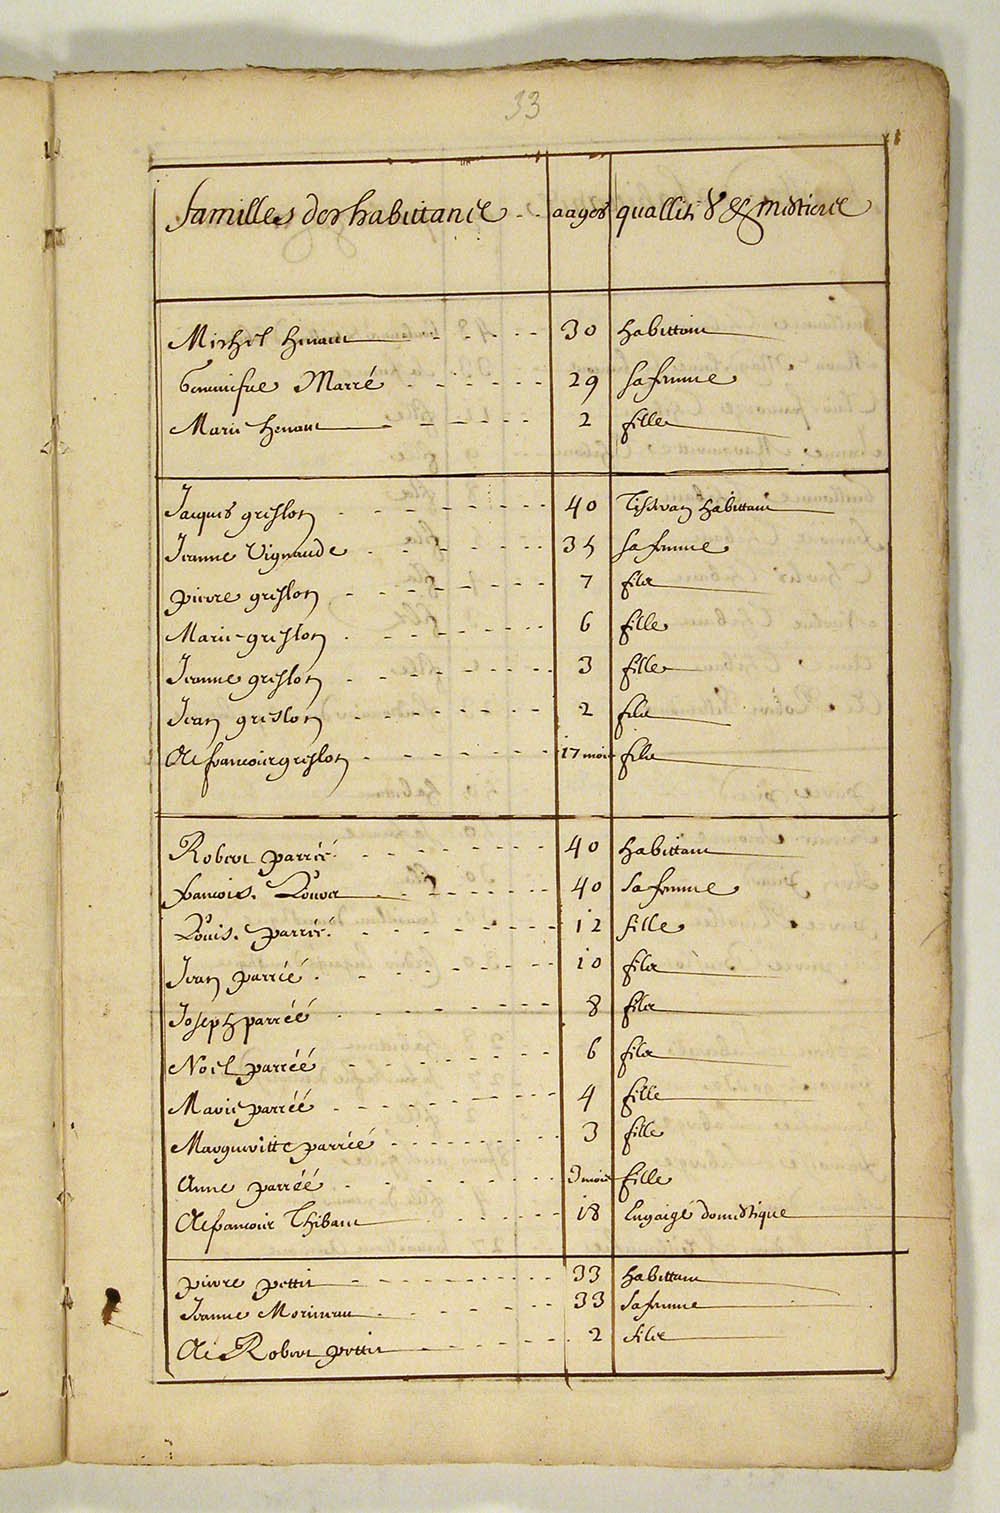 33
familles des habittans aages quallités & mestieres
Michel henaut 30 habittant
Geneviefve Marré 29 sa femme
Marie henaut 2 fille
Jacques greslon 40 Tisseran habittant
Jeanne Vignaude 35 sa femme
pierre greslon 7 filz
Marie greslon 6 fille
Jeanne greslon 3 fille
Jean greslon 2 filz
& francois greslon 17 mois filz
Robert parréé 40 habittant
francoise Louver 40 sa femme
Louise parréé 12 fille
Jean parréé 10 filz
Joseph parréé 8 filz
Noel parréé 6 filz
Marie parréé 4 fille
Margueritte parréé 3 fille
Anne parréé 3 mois fille
& francois Thibaut 18 Engaigé domestique
pierre pettit 33 habittant
Jeanne Morineau 33 sa femme
& Robert pettit 2 filz